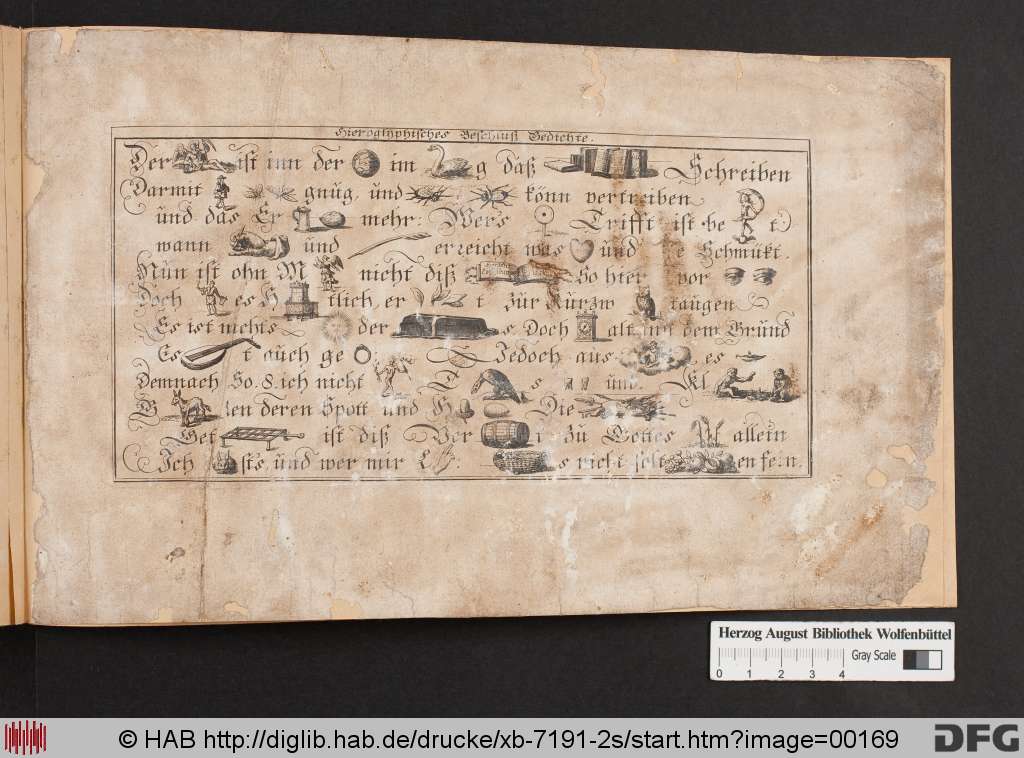 Hieroglyphisches Beschluß Gedichte.
Der ist inn der im g daß Schreiben
Darmit gnüg, und könn vertreiben
und das Er mehr. Wers Trifft ist be t
wann und erreicht was und e Schmükt.
Nün ist ohn M nicht diß So hier vor
Doch es H tlich, er t zür Kürzw taugen
Es ist nichts der s. Doch alt mit dem Gründ
Es t auch ge Jedoch aus es
Demnach So. 8. ich nicht s und Kl
len deren Spott und H Die
Get ist diß Ver i zu Gottes allein
Ich sts, und wer mir s nicht solt en fein.
Herzog August Bibliothek Wolfenbüttel
0 1 2 3 4 Gray Scale
© HAB http://diglib.hab.de/drucke/xb-7191-2s/start.htm?image=00169
DFG